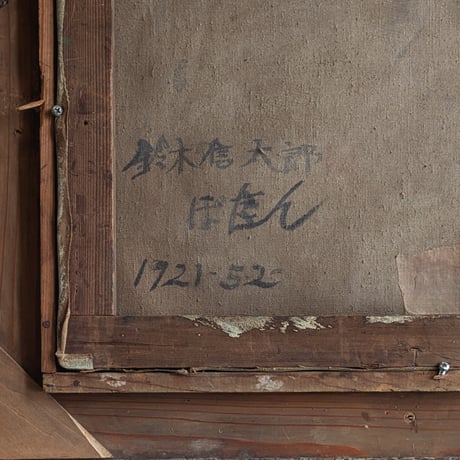 鈴木信太郎
ぼたん
1921-52